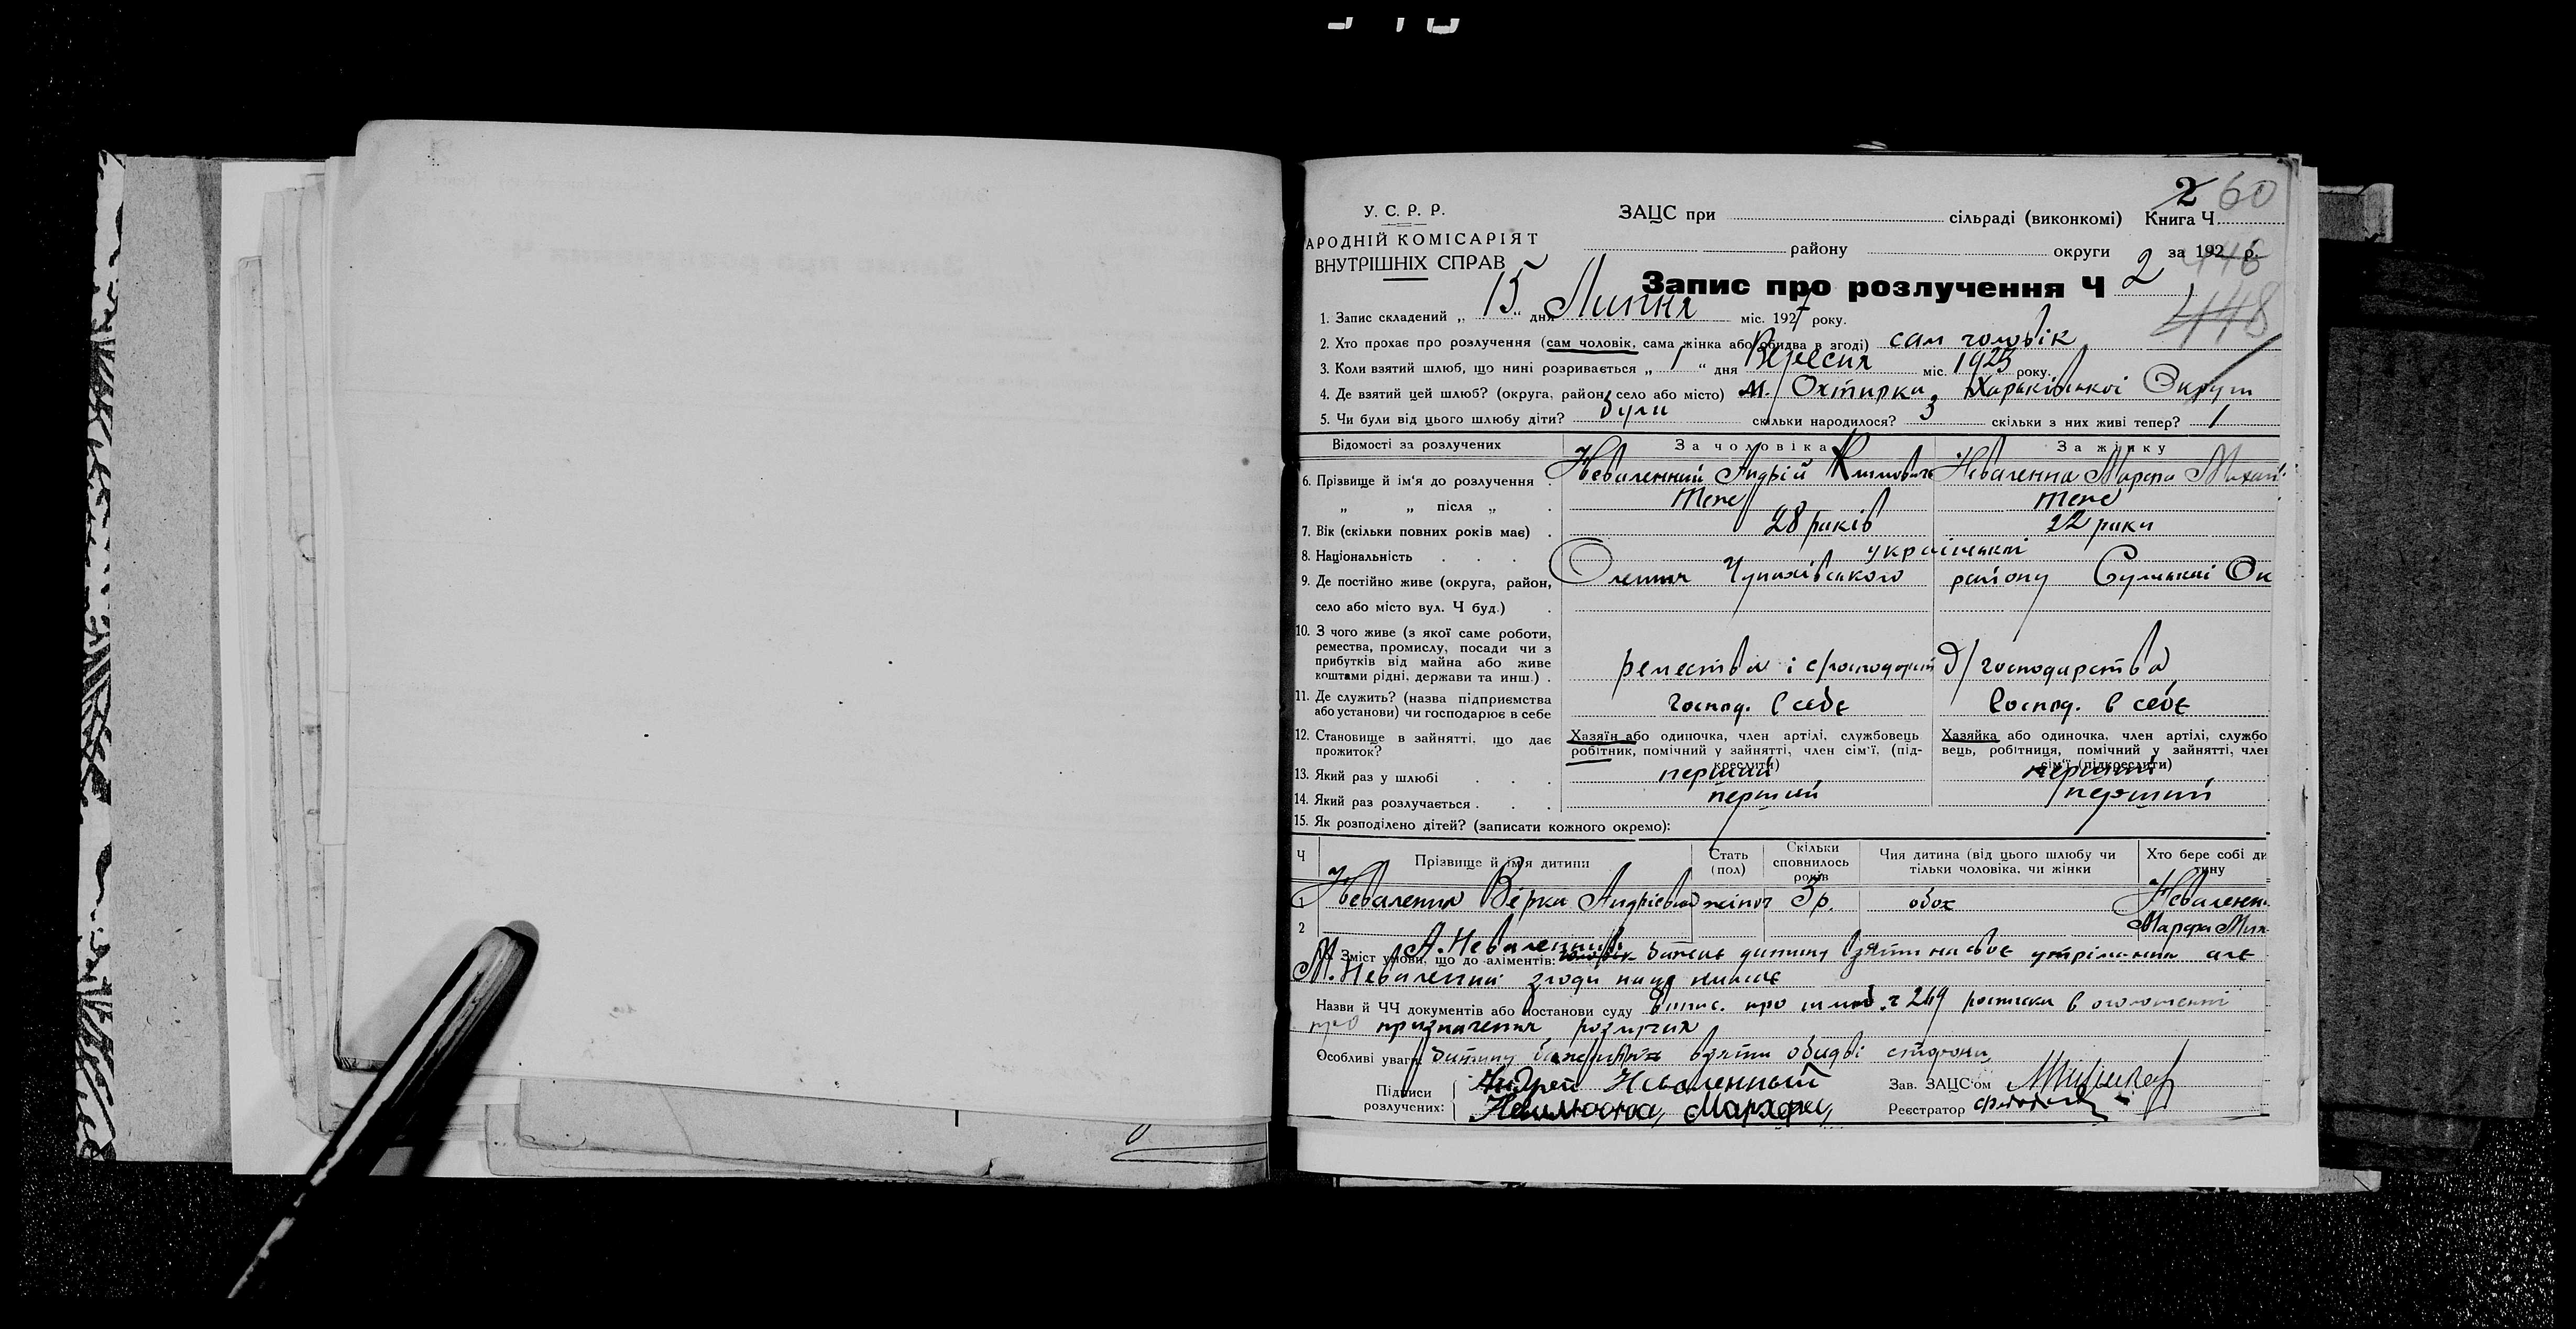 2 60
У. С. Р. Р.
ЗАЦС при сільраді (виконкомі) Книга Ч
АРОДНІЙ КОМІСАРІЯТ
району округи за 192 р.
ВНУТРІШНІХ СПРАВ
446
Запис про розлучення Ч 2
448
1. Запис складений „ 15 “ дня Липня міс. 1927 року.
2. Хто прохає про розлучення (сам чоловік, сама жінка або обидва в згоді) сам чоловік
3. Коли взятий шлюб, що нині розривається „ 1 “ дня Вересня міс. 1923 року.
4. Де взятий цей шлюб? (округа, район, село або місто) м. Охтирка, Харьківської Округи
5. Чи були від цього шлюбу діти? були скільки народилося? 3 скільки з них живі тепер? 1
Відомості за розлучених За чоловіка За жінку
6. Прізвище й ім'я до розлучення Неваленний Андрій Климович Неваленна Марфа Михай
„ „ після „ теж теж
7. Вік (скільки повних років має) 28 років 22 роки
8. Національність української
9. Де постійно живе (округа, район, Олешня Чупахівського району Сумської Ок
село або місто вул. Ч буд.)
10. З чого живе (з якої саме роботи,
ремества, промислу, посади чи з
прибутків від майна або живе
коштами рідні, держави та инш.) ремества і с/господарст д/господарства
11. Де служить? (назва підприємства
або установи) чи господарює в себе господ. в себе господ. в себе
12. Становище в зайнятті, що дає прожиток? Хазяїн або одиночка, член артілі, службовець робітник, помічний у зайнятті, член сім'ї, (підкреслити)
Хазяйка або одиночка, член артілі, службо
вець, робітниця, помічний у зайнятті, член
сім'ї (підкреслити)
13. Який раз у шлюбі перший перший
14. Який раз розлучається перший перший
15. Як розподілено дітей? (записати кожного окремо):
Ч Прізвище й ім'я дитини Стать (пол) Скільки сповнилось років Чия дитина (від цього шлюбу чи тільки чоловіка, чи жінки Хто бере собі дитину
1 Неваленна Вірка Андрієвна жіноч 3 р. обох Невален
2 Марфа Мих
Зміст умови, що до аліментів: А. Неваленний бажає дитину взяти на своє утрімання але
М. Неваленна згоди на це не має
Назви й ЧЧ документів або постанови суду Випис. про шлюб ч 249 расписки в оголошенні
про призначення розлучки
Особливі уваги дитину бажають взяти обидві сторони
Підписи розлучених: Андрей Неваленный
Мархфа,
Зав. ЗАЦС'ом
Реєстратор